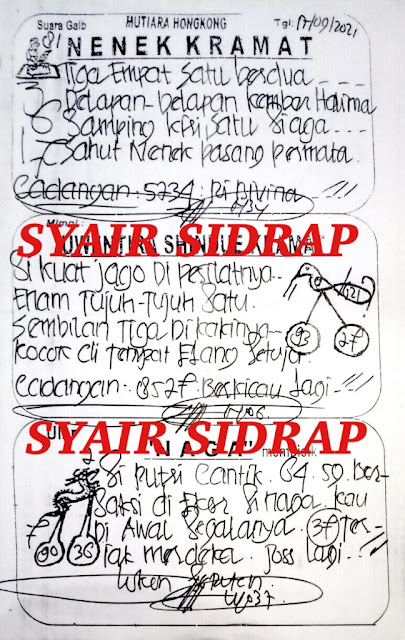 Suara Gaib MUTIARA HONGKONG Tgl: 17/09/2021
81 NENEK KRAMAT
Tiga Empat Satu berdua
Delapan-Delapan kembar
Samping Kiri Satu Siaga
Sahut Nenek pasang permata
Cadangan. 5734.
Mimpi
SYAIR SIDRAP
Si Kuat Jago Di
Enam Tujuh-Tujuh Satu
Sembilan Tiga Di kakinya
Kocok di Tempat Elang Setuju
93 27
Cadangan. 8527. Berkicau Lagi
SYAIR SIDRAP
"NAGA"
Si Putri Cantik. 64. 59. Ber-
Saksi di Ekor Si naga kau
Di Awal Segalanya. 37 Ter-
iak merdeka. Joss lagi
90 36